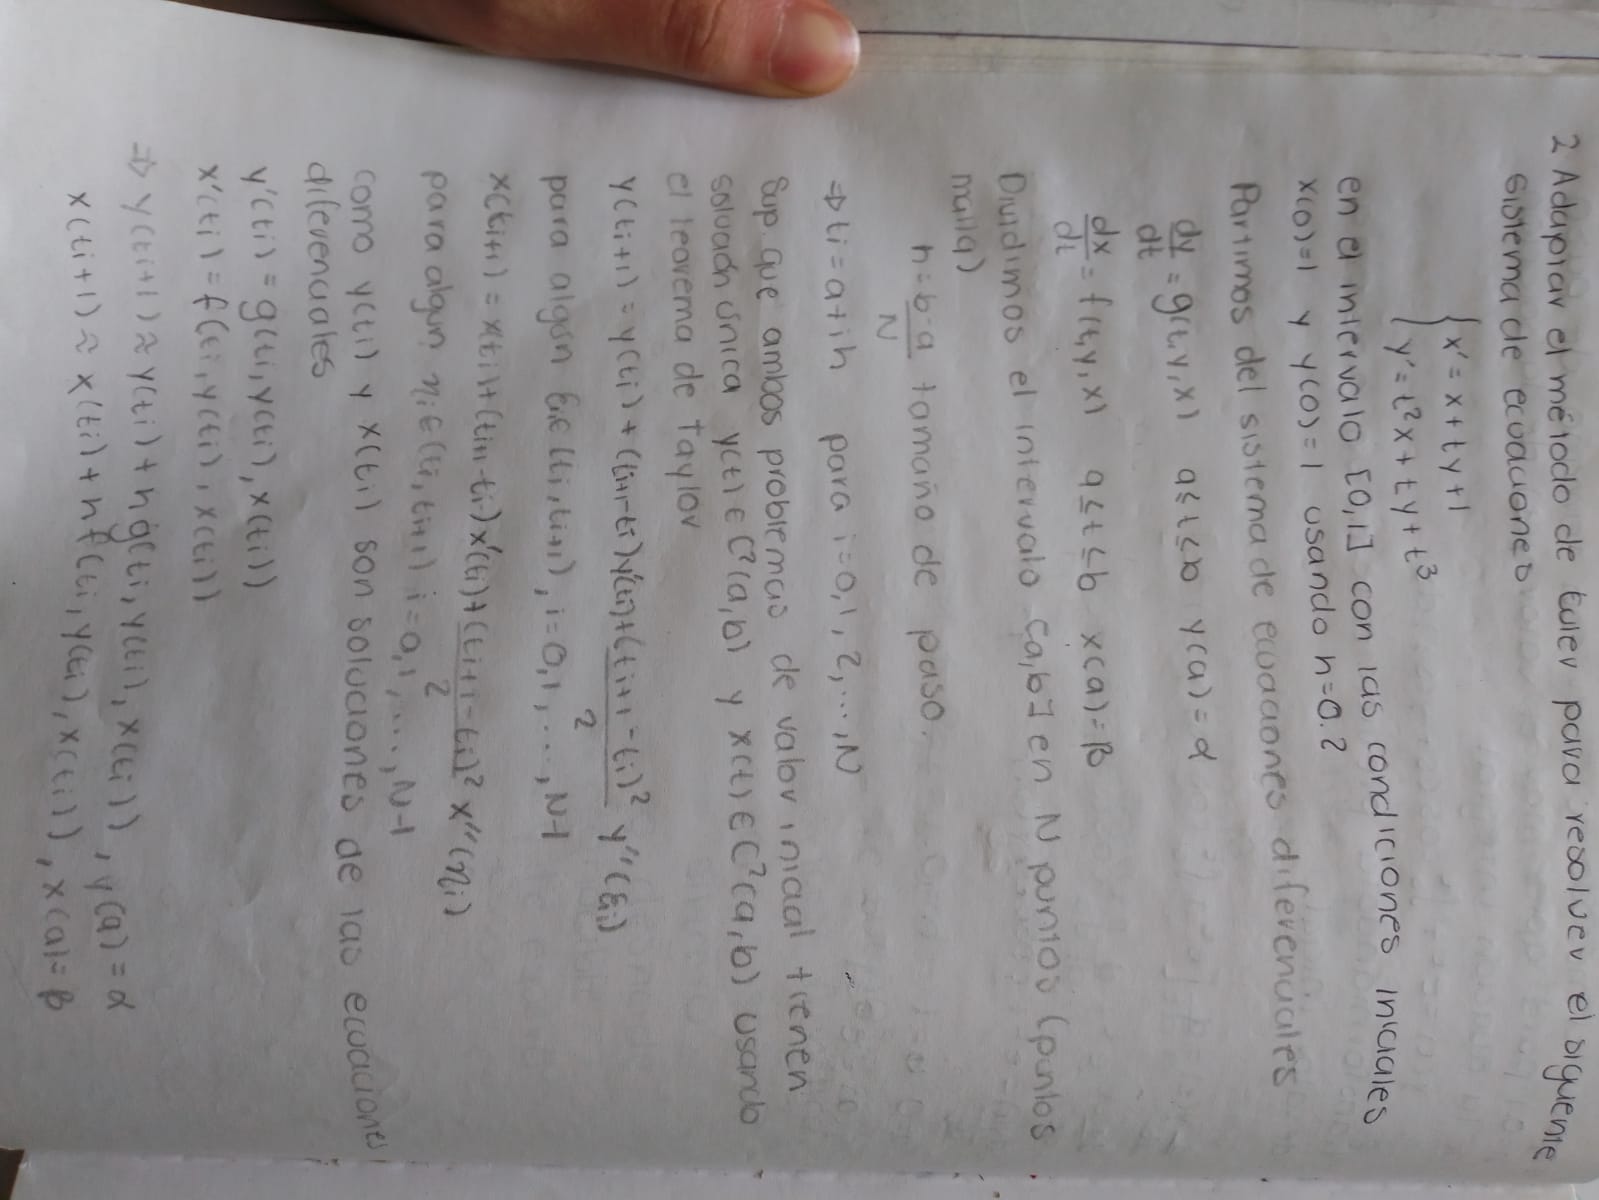 2 Adaptar el método de Euler para resolver el siguiente
sistema de ecuaciones
{ x' = x + ty + 1
y' = t²x + ty + t³
en el intervalo [0,1] con las condiciones iniciales
x(0)=1 y y(0)=1 usando h=0.2
Partimos del sistema de ecuaciones diferenciales
dy/dt = g(t,y,x) a≤t≤b y(a)=α
dx/dt = f(t,y,x) a≤t≤b x(a)=β
Dividimos el intervalo [a,b] en N puntos (puntos
malla)
h = b-a/N tamaño de paso.
⇒ ti = a+ih para i=0,1,2,...,N
Sup. que ambos problemas de valor inicial tienen
solución única y(t)∈C²(a,b) y x(t)∈C²(a,b) usando
el teorema de Taylor
y(ti+1) = y(ti) + (ti+1-ti)y'(ti) + (ti+1-ti)²/2 y''(ξi)
para algún ξi∈(ti,ti+1), i=0,1,...,N-1
x(ti+1) = x(ti)+(ti+1-ti)x'(ti)+(ti+1-ti)²/2 x''(ηi)
para algun ηi∈(ti,ti+1) i=0,1,...,N-1
como y(ti) y x(ti) son soluciones de las ecuaciones
diferenciales
y'(ti) = g(ti,y(ti),x(ti))
x'(ti) = f(ti,y(ti),x(ti))
⇒ y(ti+1) ≈ y(ti) + hg(ti,y(ti),x(ti)), y(a)=α
x(ti+1) ≈ x(ti) + hf(ti,y(ti),x(ti)), x(a)=β